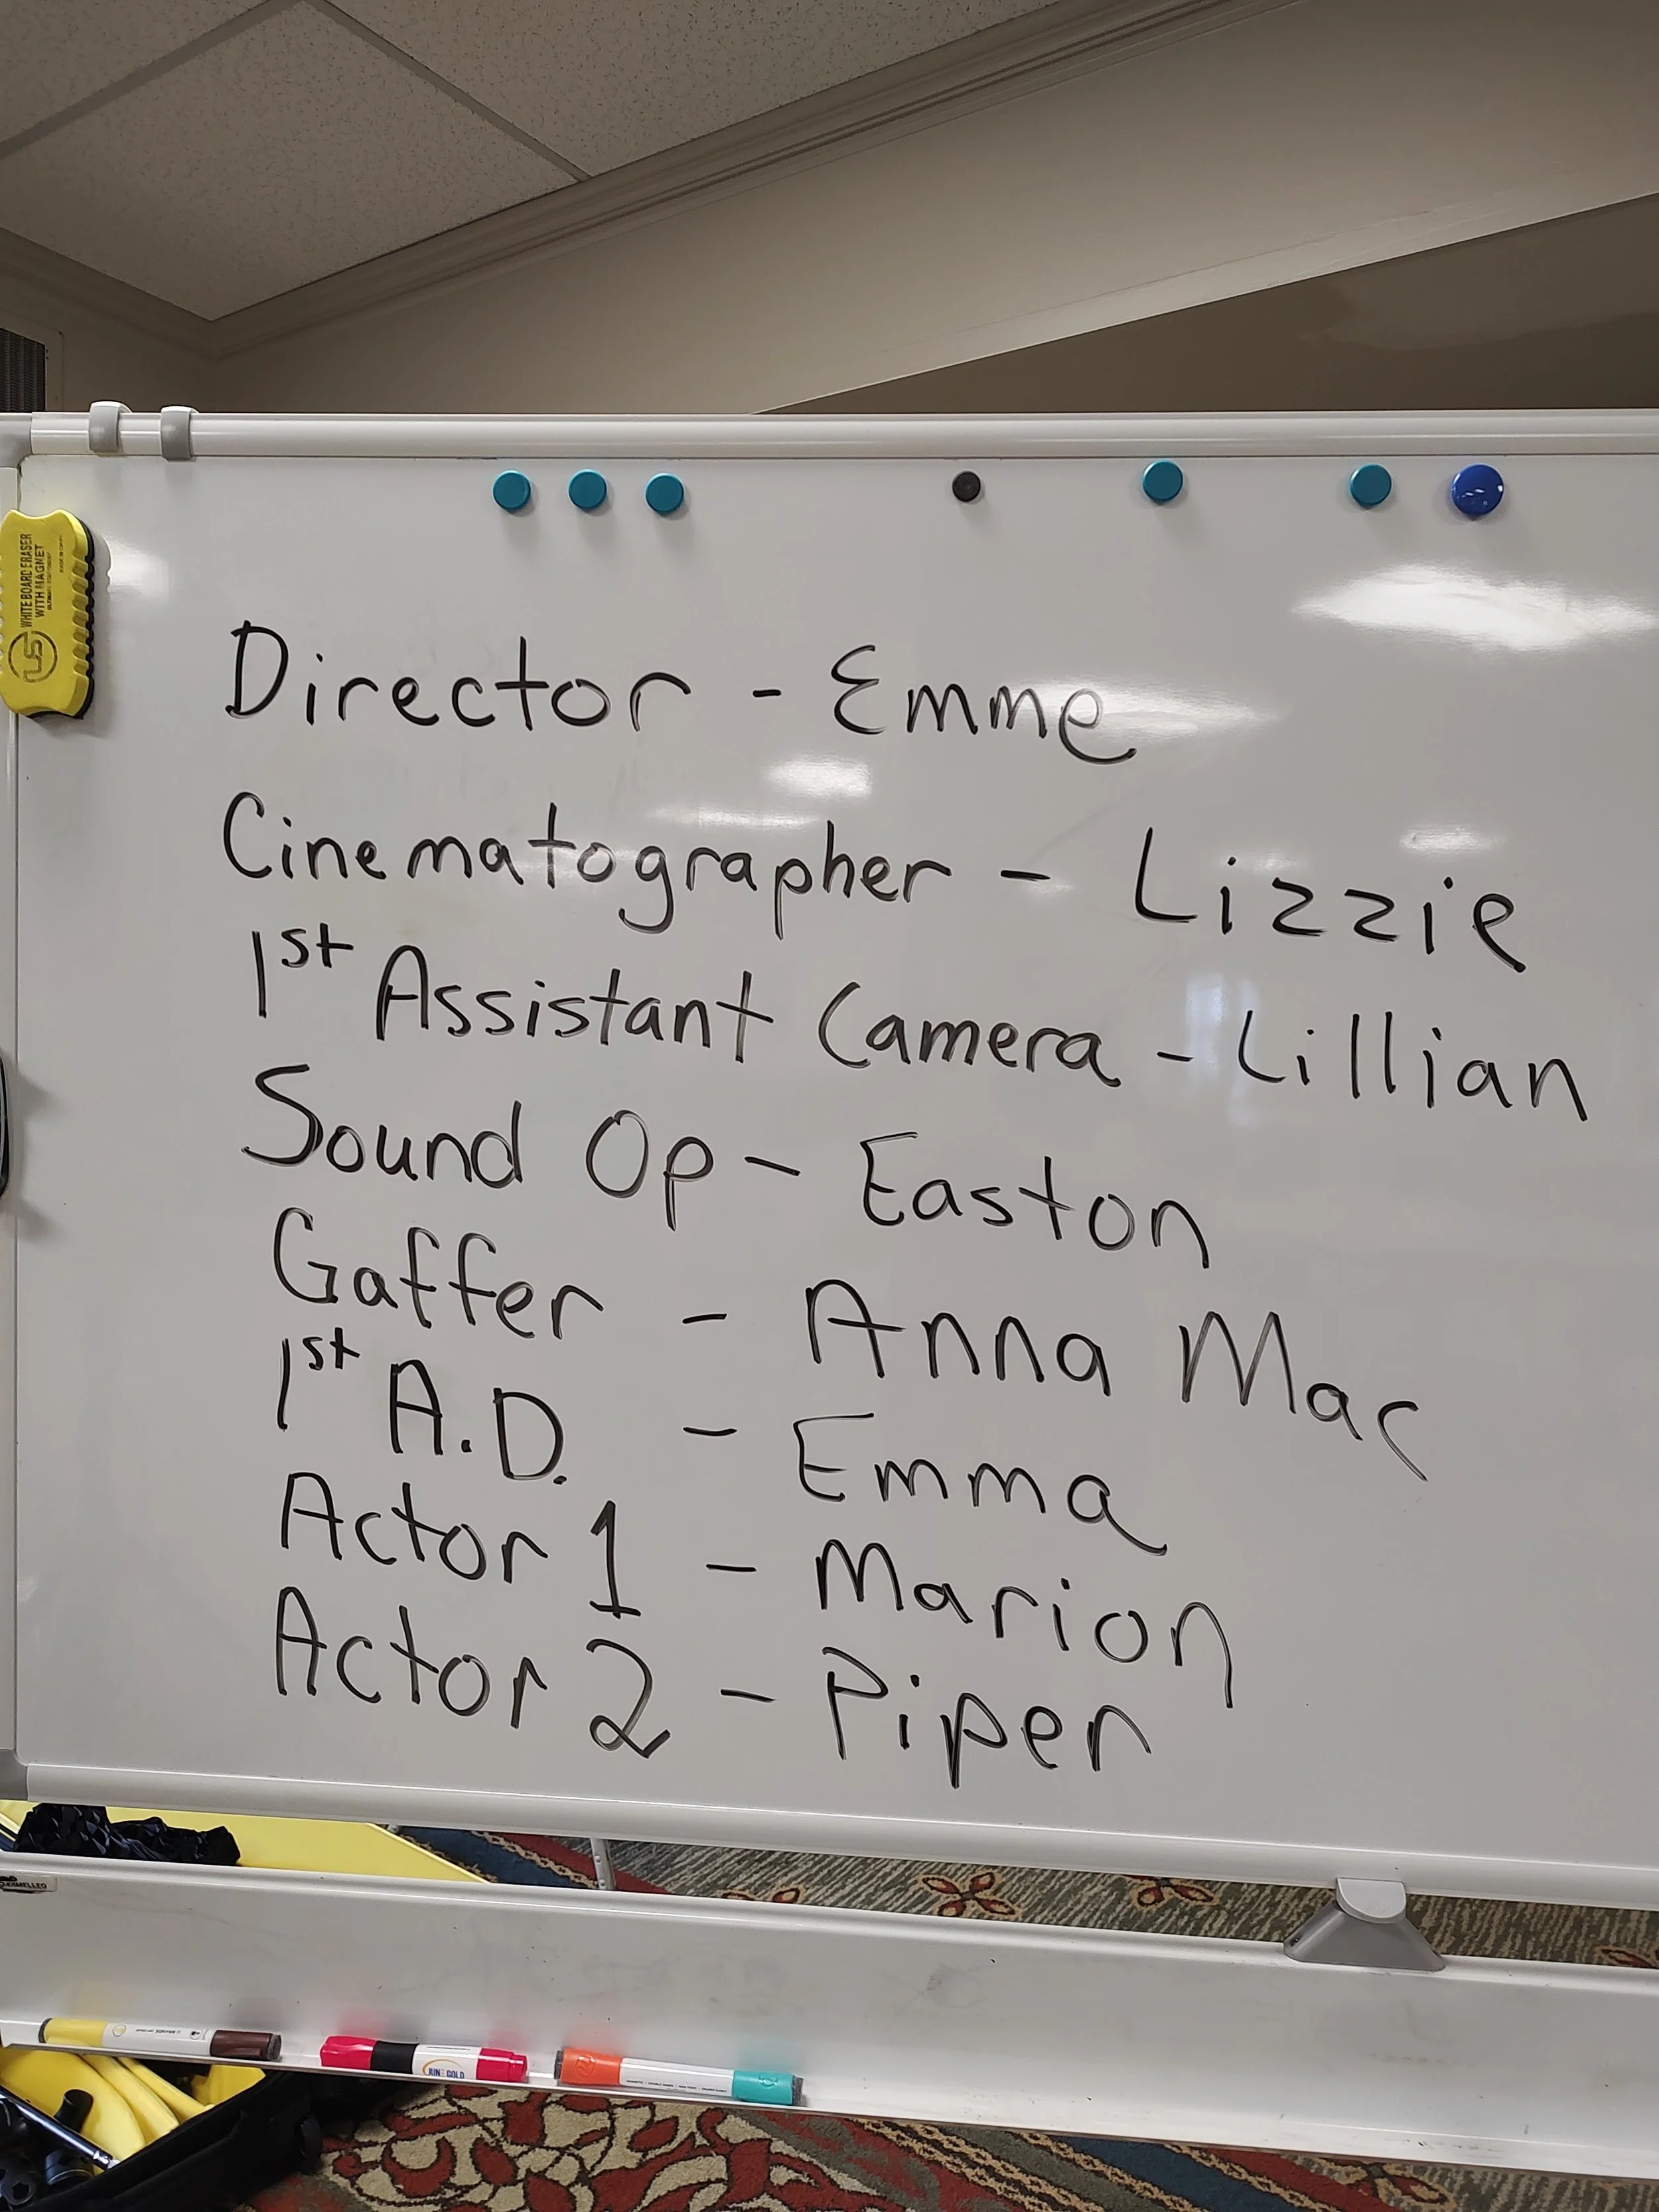 US
WHITE BOARD ERASER
WITH MAGNET
Director - Emme
Cinematographer - Lizzie
1st Assistant Camera - Lillian
Sound Op - Easton
Gaffer - Anna Mac
1st A.D. - Emma
Actor 1 - Marion
Actor 2 - Piper
JUN GOLD